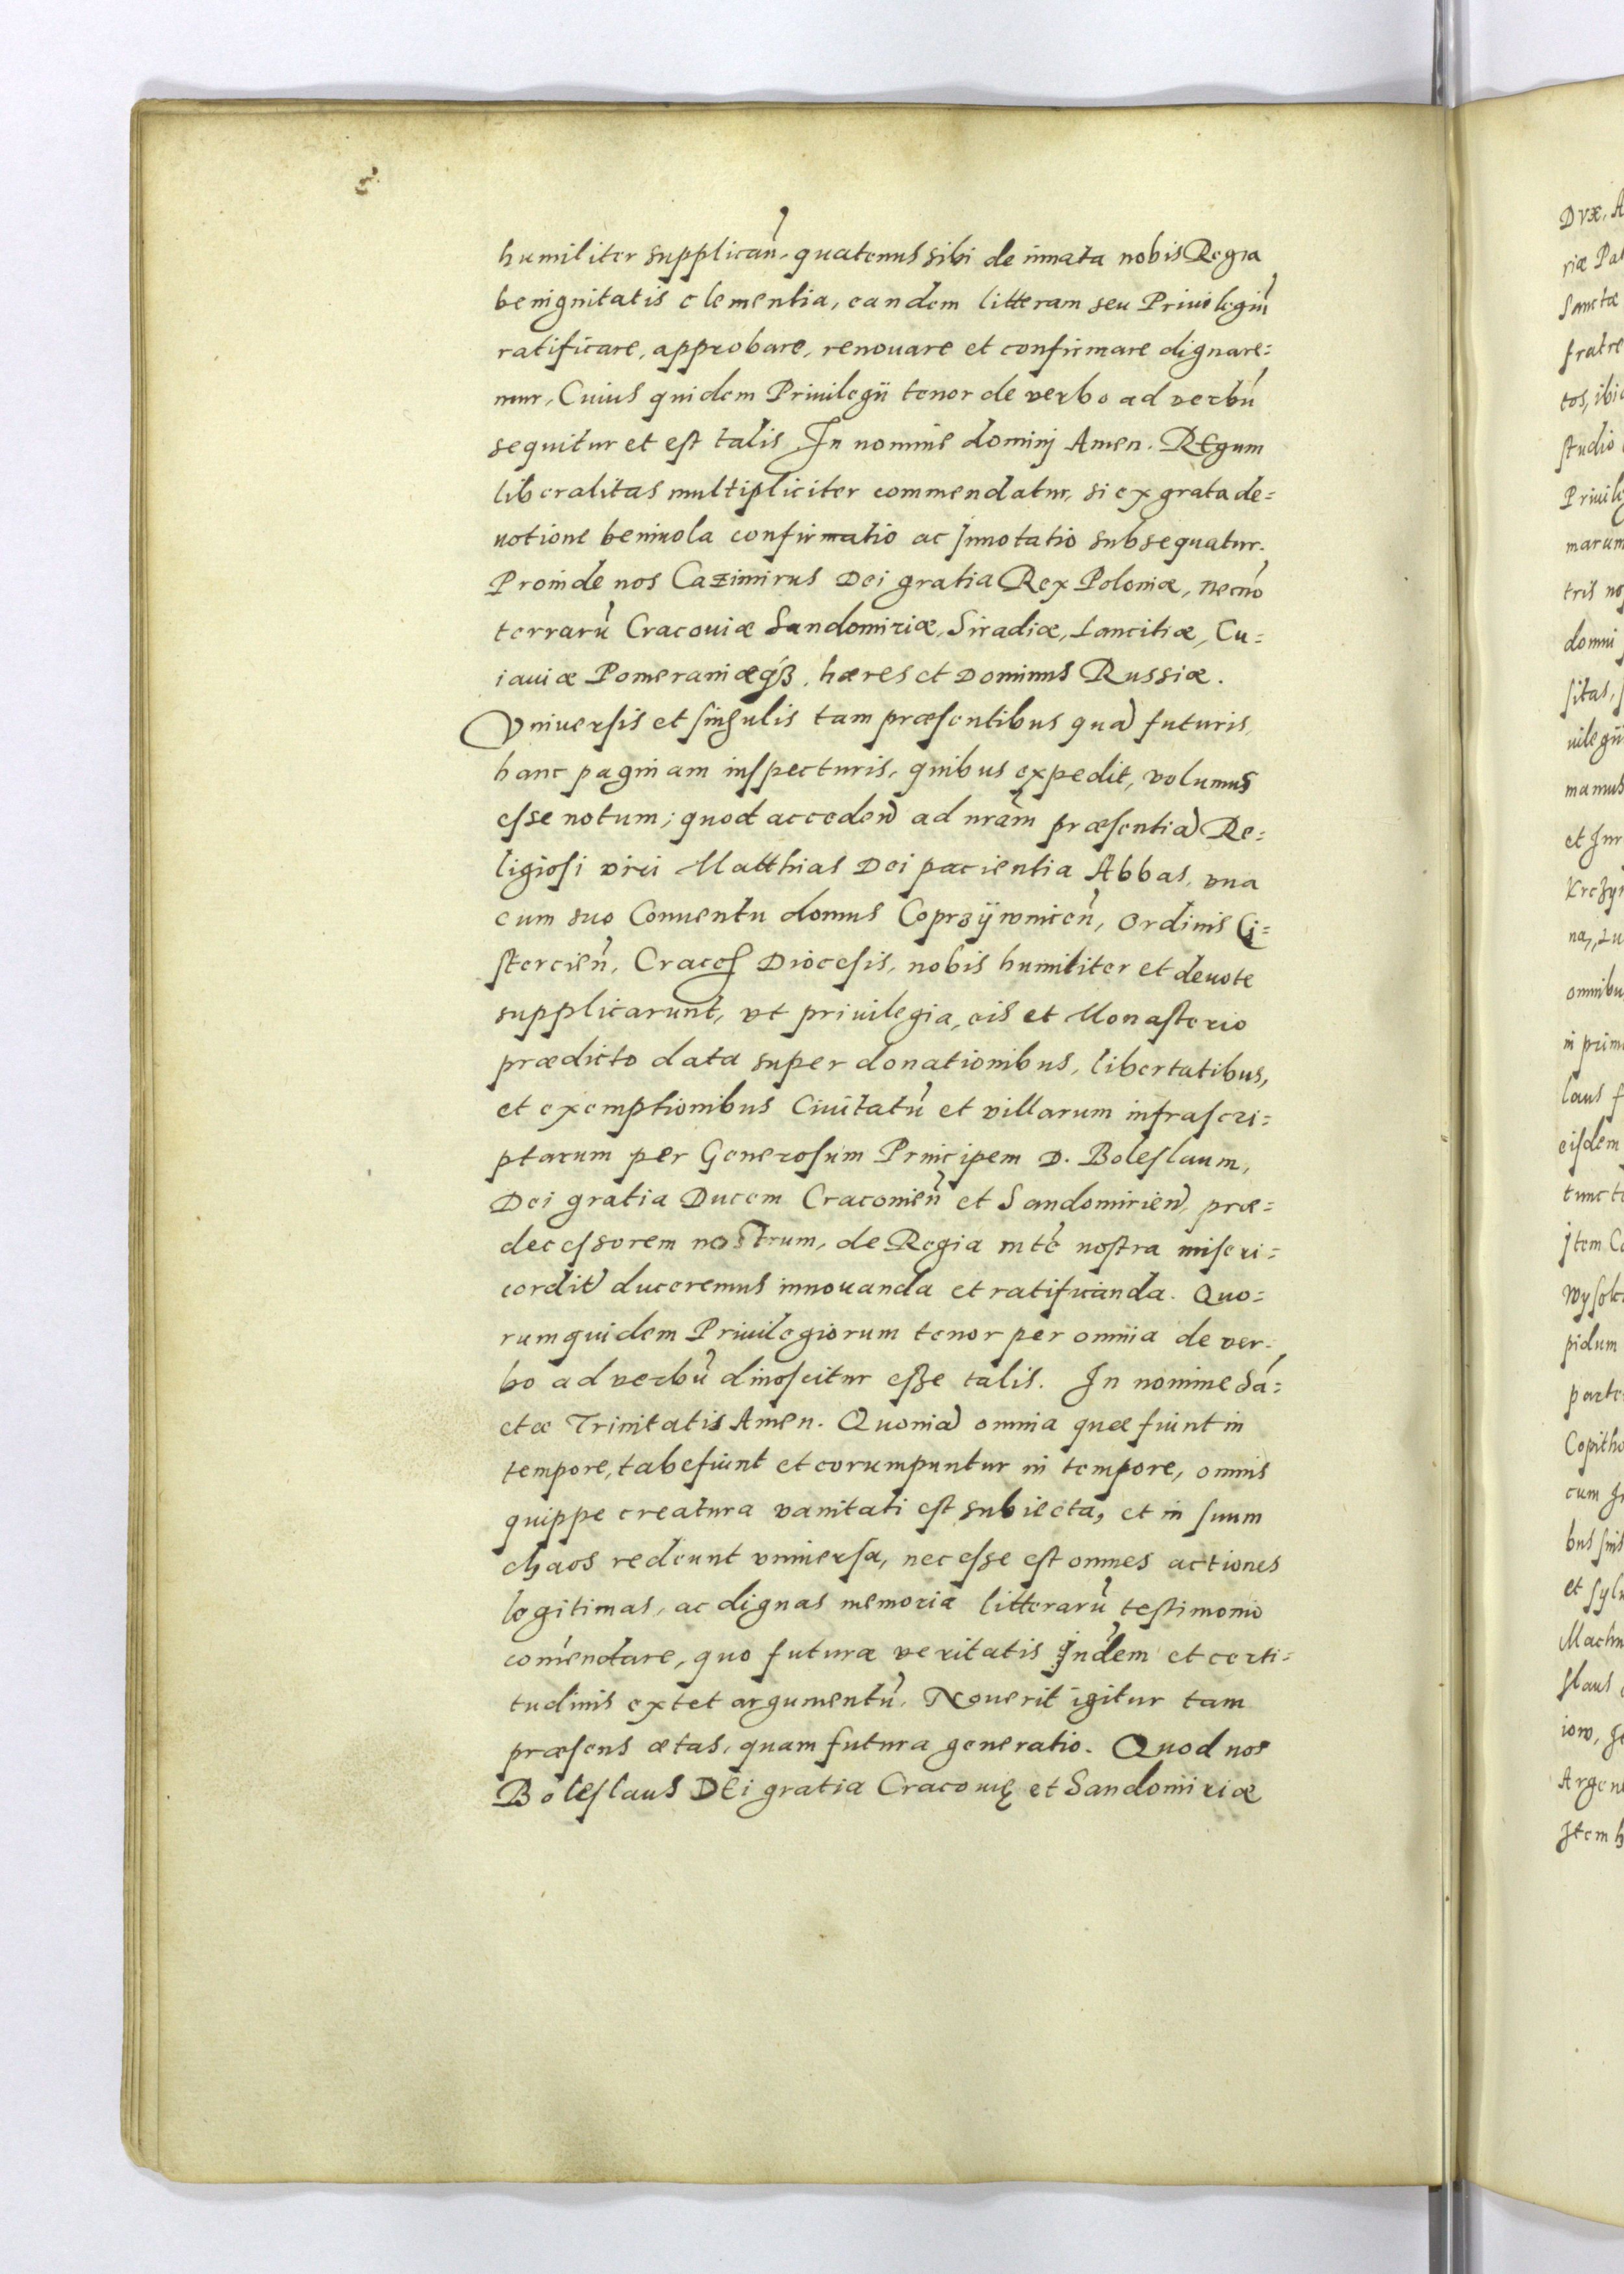 humiliter supplicañ, quatenus sibi de innata nobis Regia
benignitatis clementia, eandem litteram seu Priuilegiũ
ratificare, approbare, renouare et confirmare dignare=
mur, Cuius quidem Priuilegii tenor de verbo ad verbũ
sequitur et est talis. In nomine dominj Amen. REgum
liberalitas multipliciter commendatur, si ex grata de=
uotione beniuola confirmatio ac Innotatio subsequatur.
Proinde nos Cazimirus Dei gratia Rex Poloniæ, necnõ
terrarũ Cracouiæ Sandomiriæ, Siradiæ, Lancitiæ, Cu=
iauiæ Pomeraniæqꝫ, hæres et Dominus Russiæ.
Vniuersis et singulis tam præsentibus quã futuris,
hanc paginam inspecturis, quibus expedit, volumus
esse notum; quod accedeñ ad nrãm præsentiã Re=
ligiosi viri Matthias Dei pacientia Abbas, vna
cum suo Conuentu domus Coprzÿwniceñ, Ordinis Ci=
stercieñ, Craceß Diocesis, nobis humiliter et deuote
supplicarunt, vt priuilegia, eis et Monasterio
prædicto data super donationibus, libertatibus,
et exemptionibus Ciuitatũ et villarum infrascri=
ptarum per Generosum Principem D. Boleslaum,
Dei gratia Ducem Cracouieñ et Sandomirieñ, præ=
decessorem nostrum, de Regia mtẽ nostra miseri=
corditer̃ duceremus innouanda et ratificanda. Quo=
rum quidem Priuilegiorum tenor per omnia de ver-
bo ad verbũ dinoscitur esse talis. In nomine Sã=
ctæ Trinitatis Amen. Quoniã omnia quæ fiunt in
tempore, tabefiunt et corumpuntur in tempore, omnis
quippe creatura vanitati est subiecta, et in suum
chaos redeunt vniuersa, necesse est omnes actiones
legitimas, ac dignas memoria litterarũ testimonio
com̃endare, quo futuræ veritatis Jndem et certi=
tudinis extet argumentũ. Nouerit igitur tam
præsens ætas, quam futura generatio. Quod nos
Boleslaus DEi gratia Cracouię et Sandomiriæ